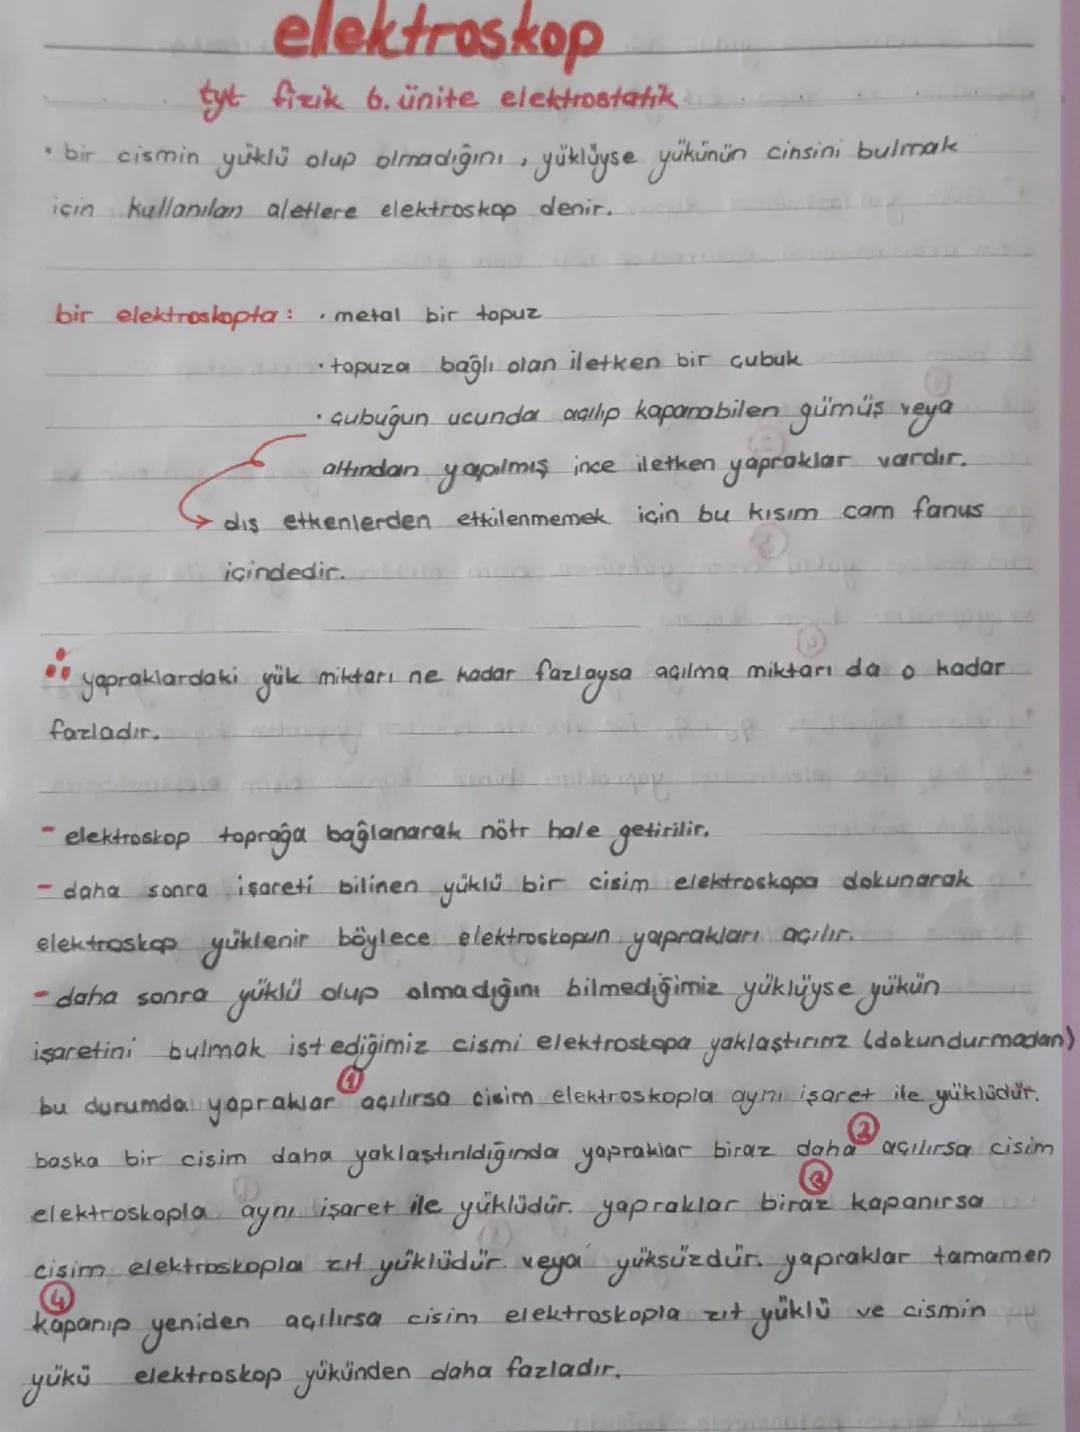 elektroskop
tyt fizik 6. ünite elektrostatik
• bir cismin yüklü olup olmadığını, yüklüyse yükünün cinsini bulmak
için kullanılan aletlere elektroskop denir.
bir elektroskopta: • metal bir topuz
• topuza bağlı olan iletken bir çubuk
• çubuğun ucunda açılıp kapanabilen gümüş veya
altından yapılmış ince iletken yapraklar vardır.
→ dış etkenlerden etkilenmemek için bu kısım cam fanus
içindedir.
yapraklardaki yük miktarı ne kadar fazlaysa açılma miktarı da o kadar
fazladır.
- elektroskop toprağa bağlanarak nötr hale getirilir.
- daha sonra işareti bilinen yüklü bir cisim elektroskopa dokunarak
elektroskop yüklenir böylece elektroskopun yaprakları açılır.
- daha sonra yüklü olup olmadığını bilmediğimiz yüklüyse yükün
işaretini bulmak istediğimiz cismi elektroskopa yaklaştırırız (dokundurmadan)
bu durumda yapraklar ① açılırsa cisim elektroskopla aynı işaret ile yüklüdür.
baska bir cisim daha yaklaştırıldığında yapraklar biraz daha ② açılırsa cisim
elektroskopla aynı işaret ile yüklüdür. yapraklar biraz ③ kapanırsa
cisim elektroskopla zıt yüklüdür veya yüksüzdür. yapraklar tamamen
④ kapanıp yeniden açılırsa cisim elektroskopla zıt yüklü ve cismin
yükü elektroskop yükünden daha fazladır.